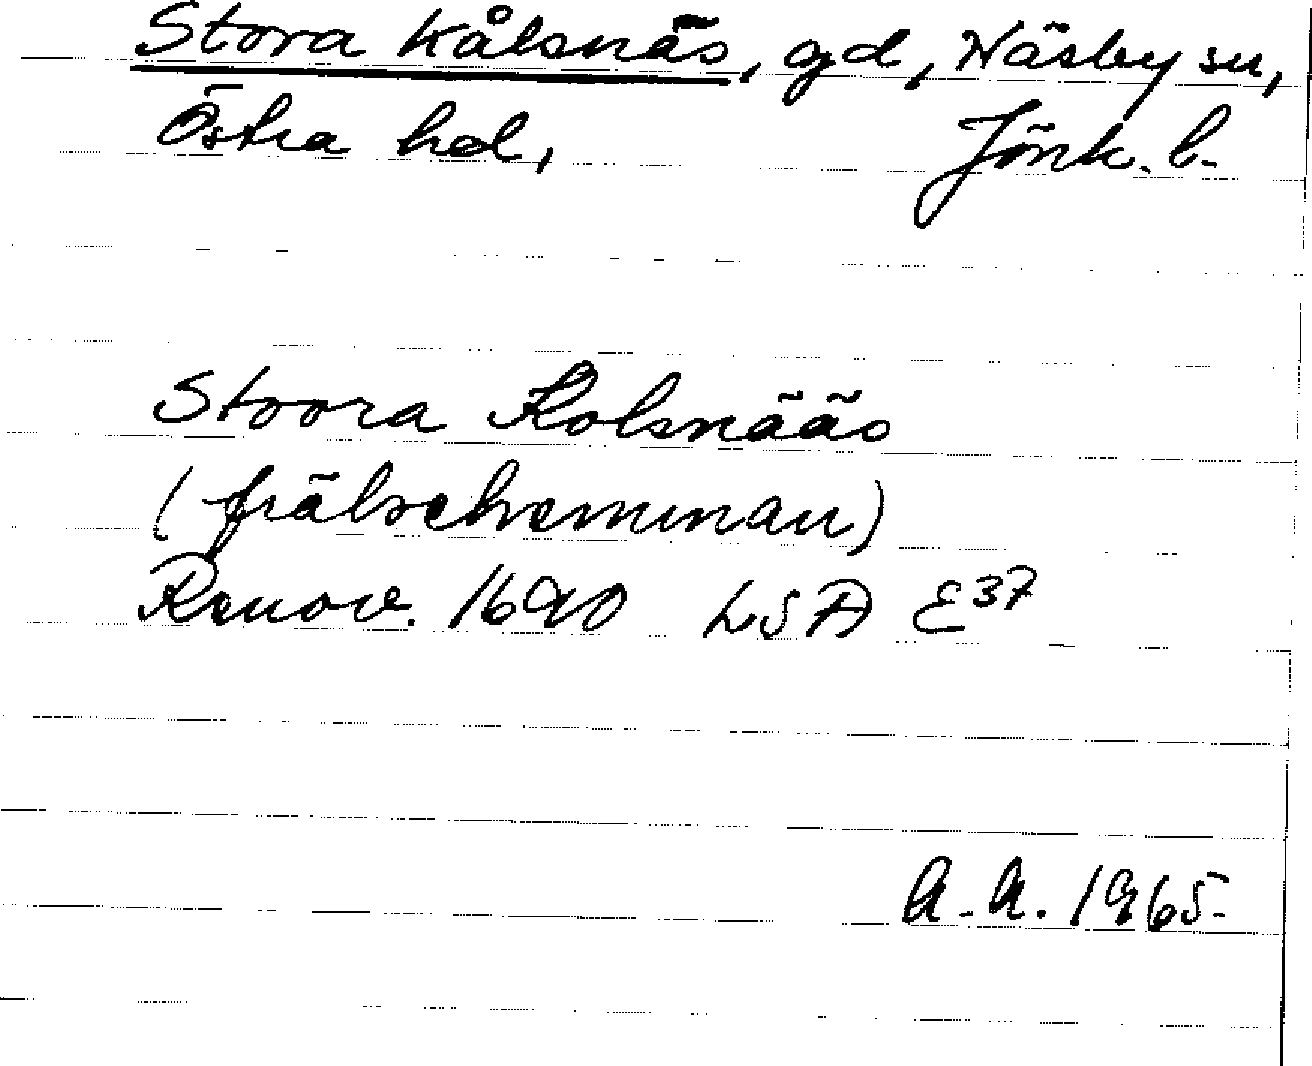 Stora Kålsnäs, gd, Näsby sn,
Östra hd, Jönk. l.
Stoora Kolsnääs
(frälsehemman)
Renov. 1690 LSA E37
A.A. 1965